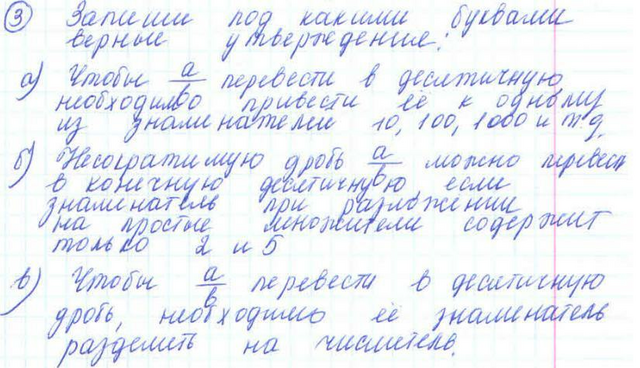 ③ Запиши под какими буквами
верные утверждения:
а) Чтобы a/b перевести в десятичную
необходимо привести её к одному
из знаменателей 10, 100, 1000 и т.д.
б) Несократимую дробь a/b можно перевести
в конечную десятичную, если
знаменатель при разложении
на простые множители содержит
только 2 и 5
в) Чтобы a/b перевести в десятичную
дробь, необходимо её знаменатель
разделить на числитель.